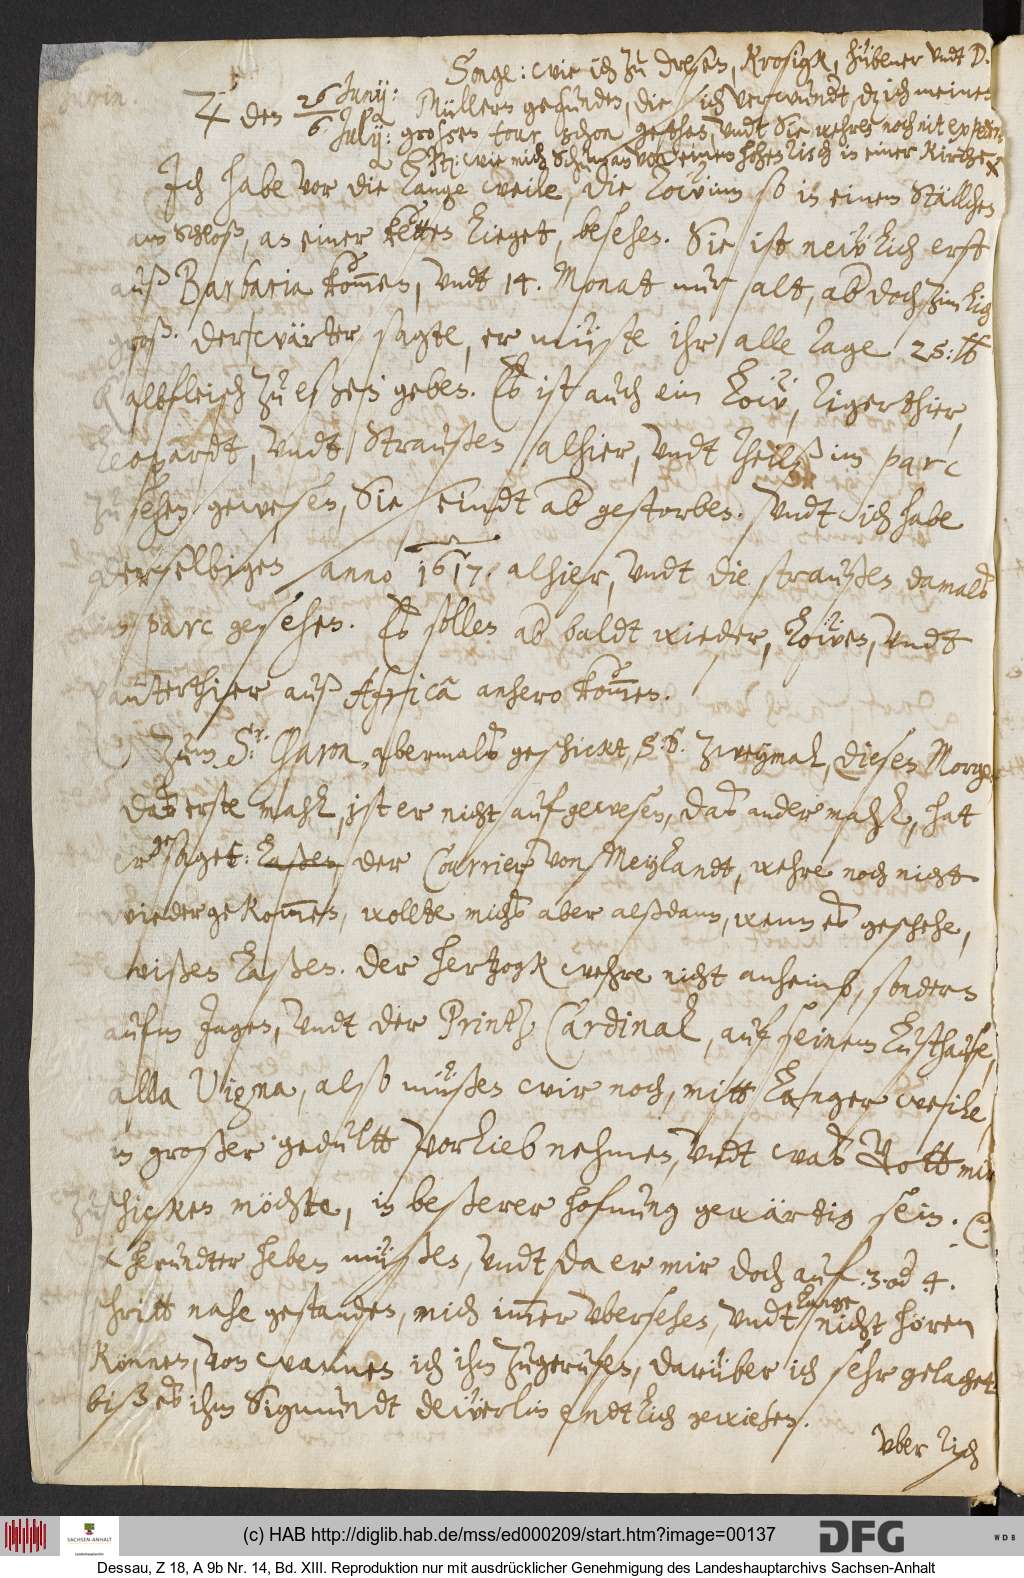 Turin.
Songe: wie ich zu Dresen, Krosigk, Hübner undt D.
♃ den 26/6 Junij: / Julij: Müllern gefunden, die sich verwundt, dz ich meinen
großen tour schon gethan, undt Sie wehren noch nit
It: wie mich von einem hohen Tisch in einer Kirche
Ich habe vor die lange weile, die Lowinn so in einem Ställchen
am Schloß, an einer ketten lieget, besehen. Sie ist neẅlich erst
auß Barbaria kommen, undt 14. Monat nur alt, ab doch zimlich
groß. Der wärter sagte, er müste ihr alle Tage 25: ℔
Kalbfleisch zu eßen geben. Es ist auch ein Loẅ, Tigerthier,
Leopardt, undt Straußen alhier, undt theilß im parc
zu sehen gewesen, Sie seindt ab gestorben. Undt ich habe
derselbigen anno 1617. alhier, undt die straußen damals
im parc gesehen. Es sollen ab baldt wieder, Loẅen, undt
panterthier auß Affrica anhero kommen.
Zum Sr. Charon, abermals geschickt, zweymal, diesen Morgen
Das erste mahl, ist er nicht auf gewesen, das ander mahl, hat
er saget: laßen, der Courrier von Meylandt, wehre noch nicht
wieder gekommen, wollte michs aber alßdann, wenn es geschehe,
wißen laßen. Der Hertzogk wehre nicht anheimb, sondern
aufm Jagen, undt der Printz Cardinal, auf seinem Lusthause,
alla Vigna, alß müßen wir noch, mitt langer weile,
in großer gedultt vorlieb nehmen, undt was Gott mir
zuschicken möchte, in beßerer hofnung gewärtig sein.
herundter heben müßen, undt da er mir doch auf .3. od 4.
schritt nahe gestanden, mich immer ubersehen, undt lange nicht hören
können, von wannen ich ihm zugerufen, darüber ich sehr gelachet
biß es ihm Sigmundt Deuerlin endtlich gewiesen.
uber Tisch
(c) HAB http://diglib.hab.de/mss/ed000209/start.htm?image=00137
SACHSEN-ANHALT
Landeshauptarchiv
DFG
WDB
Dessau, Z 18, A 9b Nr. 14, Bd. XIII. Reproduktion nur mit ausdrücklicher Genehmigung des Landeshauptarchivs Sachsen-Anhalt